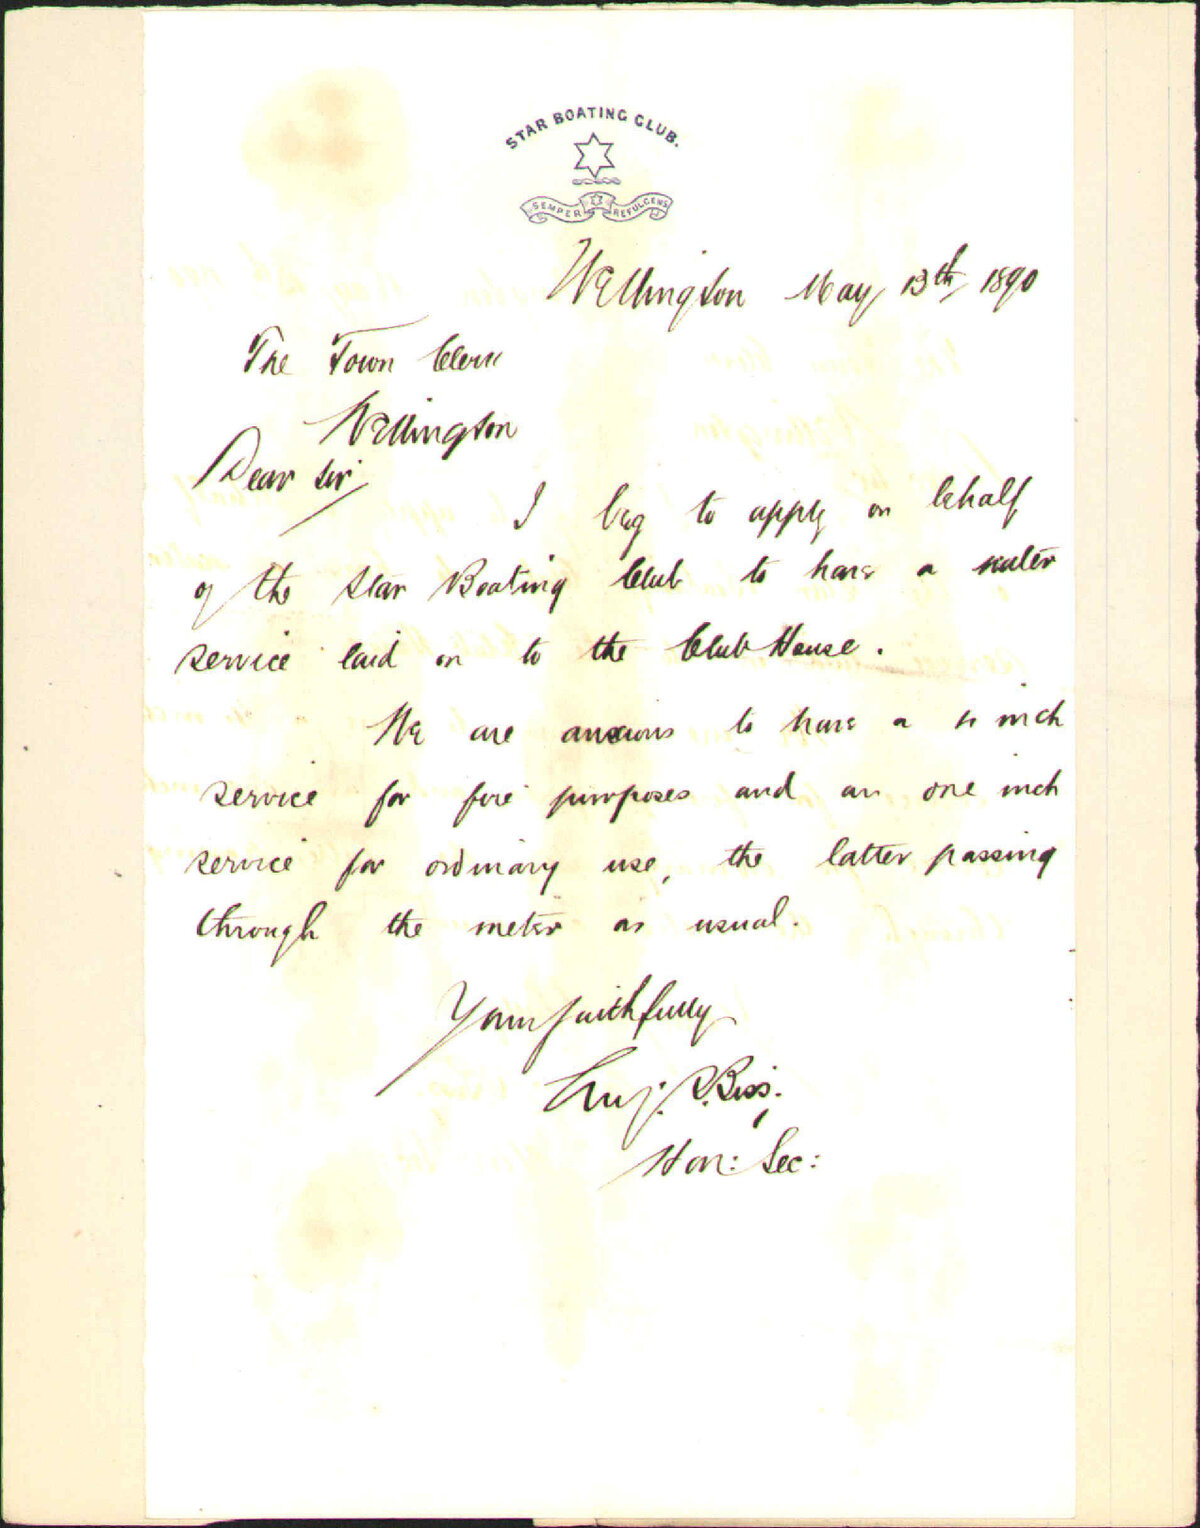 STAR BOATING CLUB.
SEMPER REFULGENS
Wellington May 13th 1890
The Town Clerk
Wellington
Dear Sir
I beg to apply on behalf
of the Star Boating Club to have a water
service laid on to the Club House.
We are anxious to have a inch
service for fire purposes and an one inch
service for ordinary use, the latter passing
through the meter as usual.
Yours faithfully
Biss.
Hon: Sec: